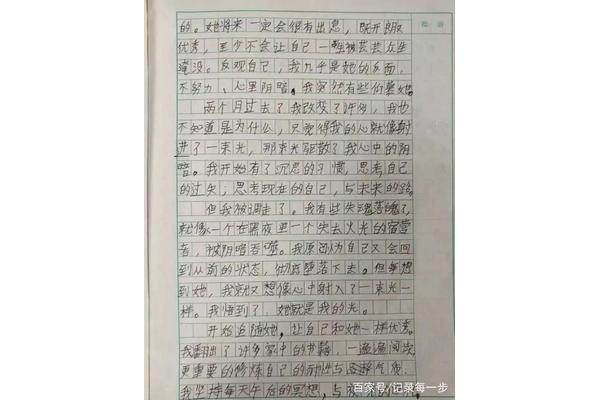 的。她将来一定会很有出息，既开朗又
优秀，至少不会让自己一独被芸芸众生
淹没。反观自己，我几乎是她的反面，
不努力、心里阴暗。我突然有些仰慕她。
两个月过去了我改变了许多，我也
不知道是为什么，只觉得我的心就像射
进了一束光，那束光驱散了我心中的阴
暗。我开始有了沉思的习惯，思考自己
的过失，思考现在的自己，与未来的路。
但我被调走了。我有些失魂落魄了，
就像一个在黑夜里一个失去火光的宿营
者，被阴暗吞噬。我原以为自己又会回
到从前的状态，彻底堕落下去。但每想
到她，我就又想像心中射入了一束光一
样。我悟到了，她就是我的光。
开始追随她，让自己和她一样优秀。
我翻出了许多家中的书籍，一遍遍阅读
更重要的修炼自己的耐性与
我坚持每天午后的冥想，与
百家号/记录每一步